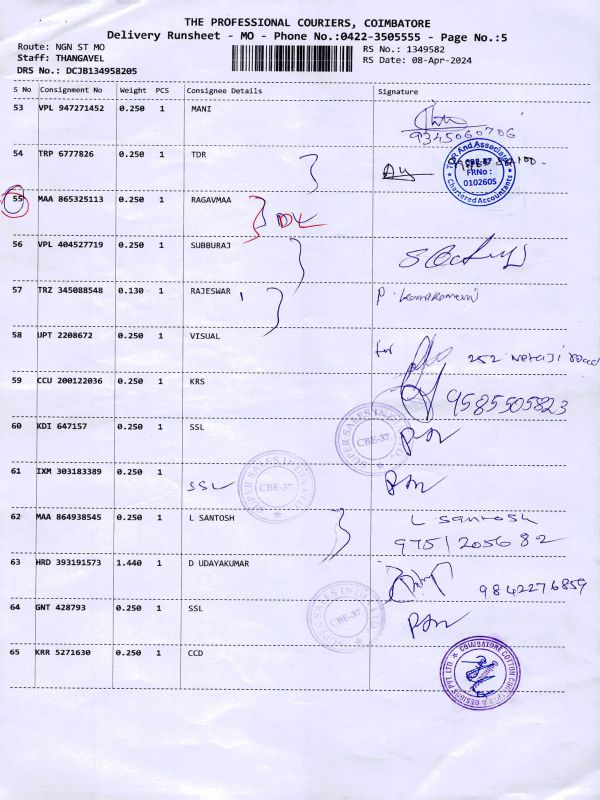 THE PROFESSIONAL COURIERS, COIMBATORE
Delivery Runsheet - MO - Phone No.:0422-3505555 - Page No.:5
Route: NGN ST MO
Staff: THANGAVEL
DRS No.: DCJB134958205
RS No.: 1349582
RS Date: 08-Apr-2024
S No Consignment No Weight PCS Consignee Details Signature
53 VPL 947271452 0.250 1 MANI
9345060706
54 TRP 6777826 0.250 1 TDR
TDR And Associates
CBE-37
FRNo :
010260S
Chartered Accountants
55 MAA 865325113 0.250 1 RAGAVMAA
DL
56 VPL 404527719 0.250 1 SUBBURAJ
57 TRZ 345088548 0.130 1 RAJESWAR
P.
58 UPT 2208672 0.250 1 VISUAL
for 252 Netaji road
59 CCU 200122036 0.250 1 KRS
9585505823
60 KDI 647157 0.250 1 SSL
SUPER SALES INDIA LTD
CBE-37
61 IXM 303183389 0.250 1
SSL
SUPER SALES INDIA LTD
CBE-37
62 MAA 864938545 0.250 1 L SANTOSH
L Santosh
9751205682
63 HRD 393191573 1.440 1 D UDAYAKUMAR
9842276859
64 GNT 428793 0.250 1 SSL
SUPER SALES INDIA LTD
CBE-37
65 KRR 5271630 0.250 1 CCD
COIMBATORE COTTON DESIGNS PVT LTD